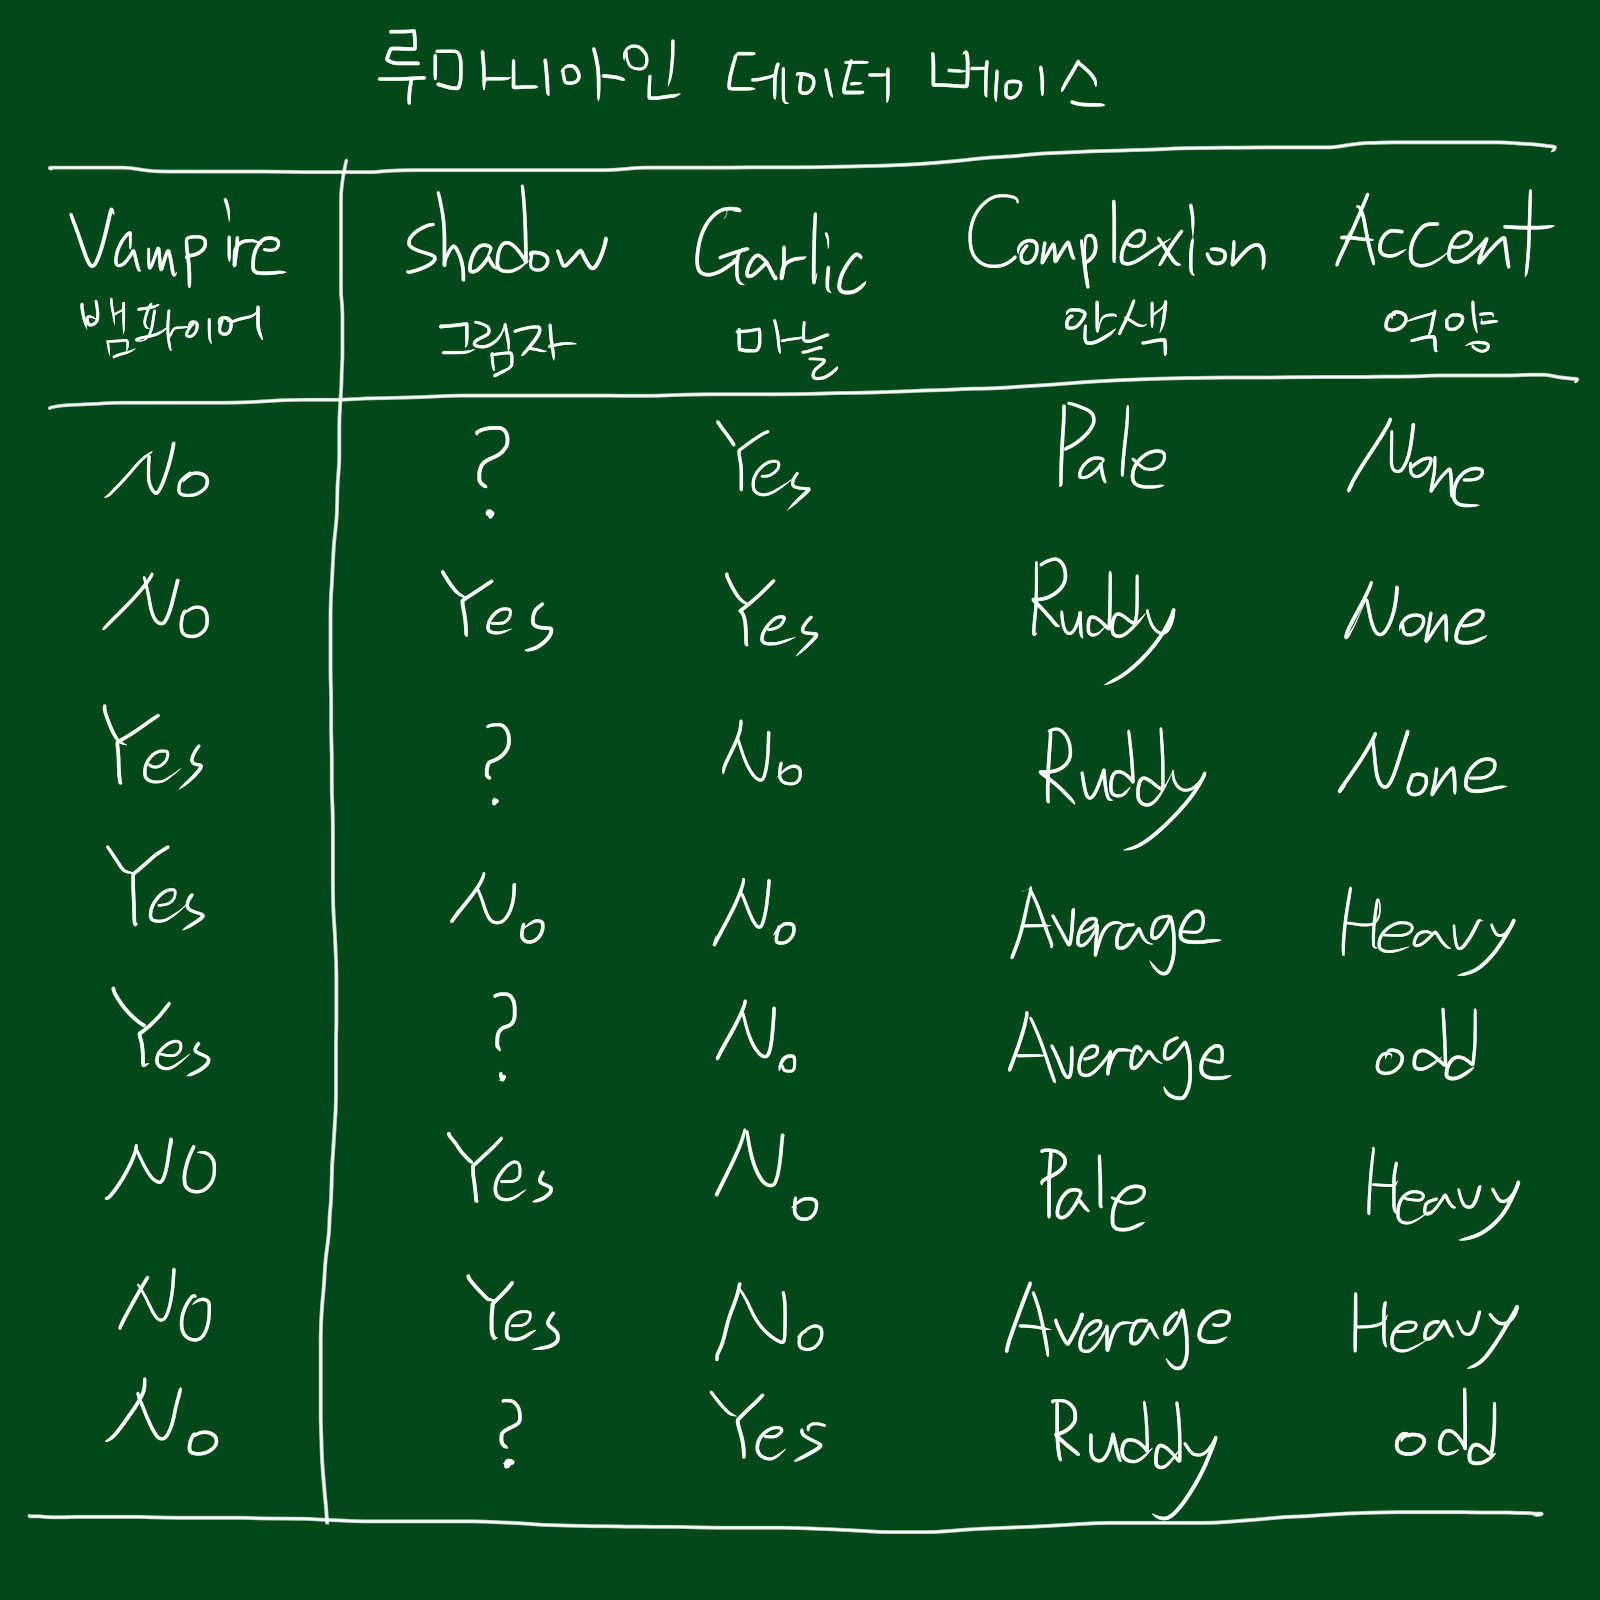 루마니아인 데이터 베이스
Vampire shadow Garlic Complexion Accent
뱀파이어 그림자 마늘 안색 억양
No ? Yes Pale None
No Yes Yes Ruddy None
Yes ? No Ruddy None
Yes No No Average Heavy
Yes ? No Average odd
NO Yes No Pale Heavy
NO Yes No Average Heavy
No ? Yes Ruddy odd